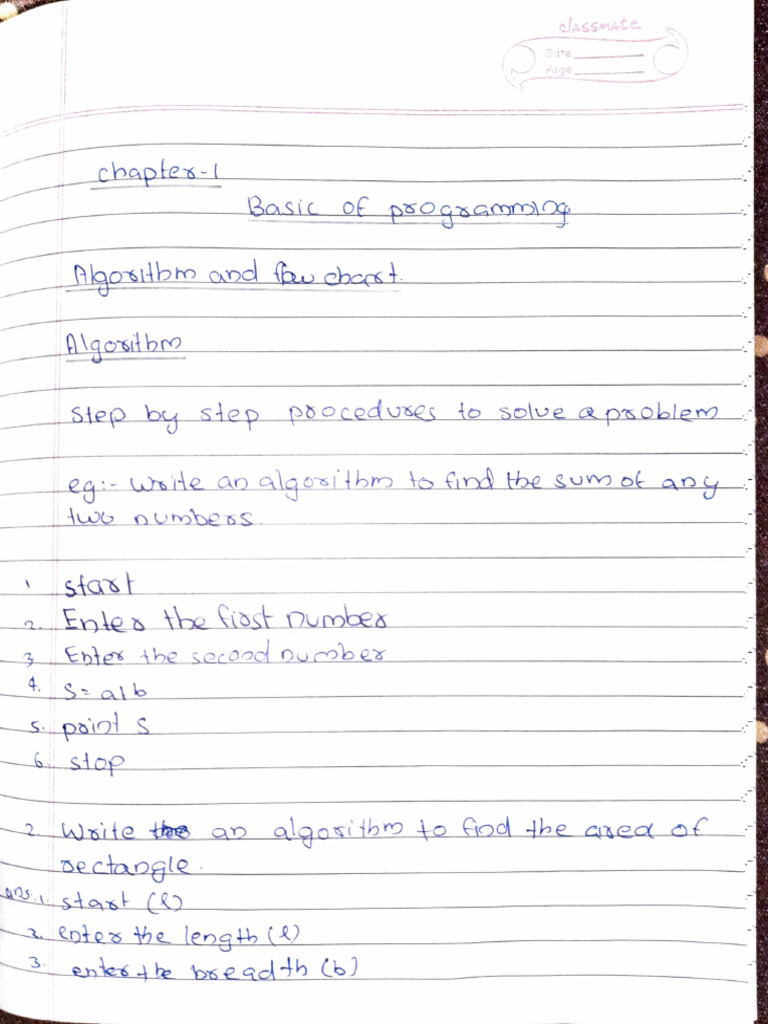 classmate
Date
Page
chapter-1
Basic of programming
Algorithm and flow chart.
Algorithm
step by step procedures to solve a problem
eg:- write an algorithm to find the sum of any
two numbers.
1. start
2. Enter the first number
3. Enter the second number
4. S= a+b
5. print S
6. stop
2. Write the an algorithm to find the area of
rectangle.
Ans.1. start (l)
2. enter the length (l)
3. enter the breadth (b)